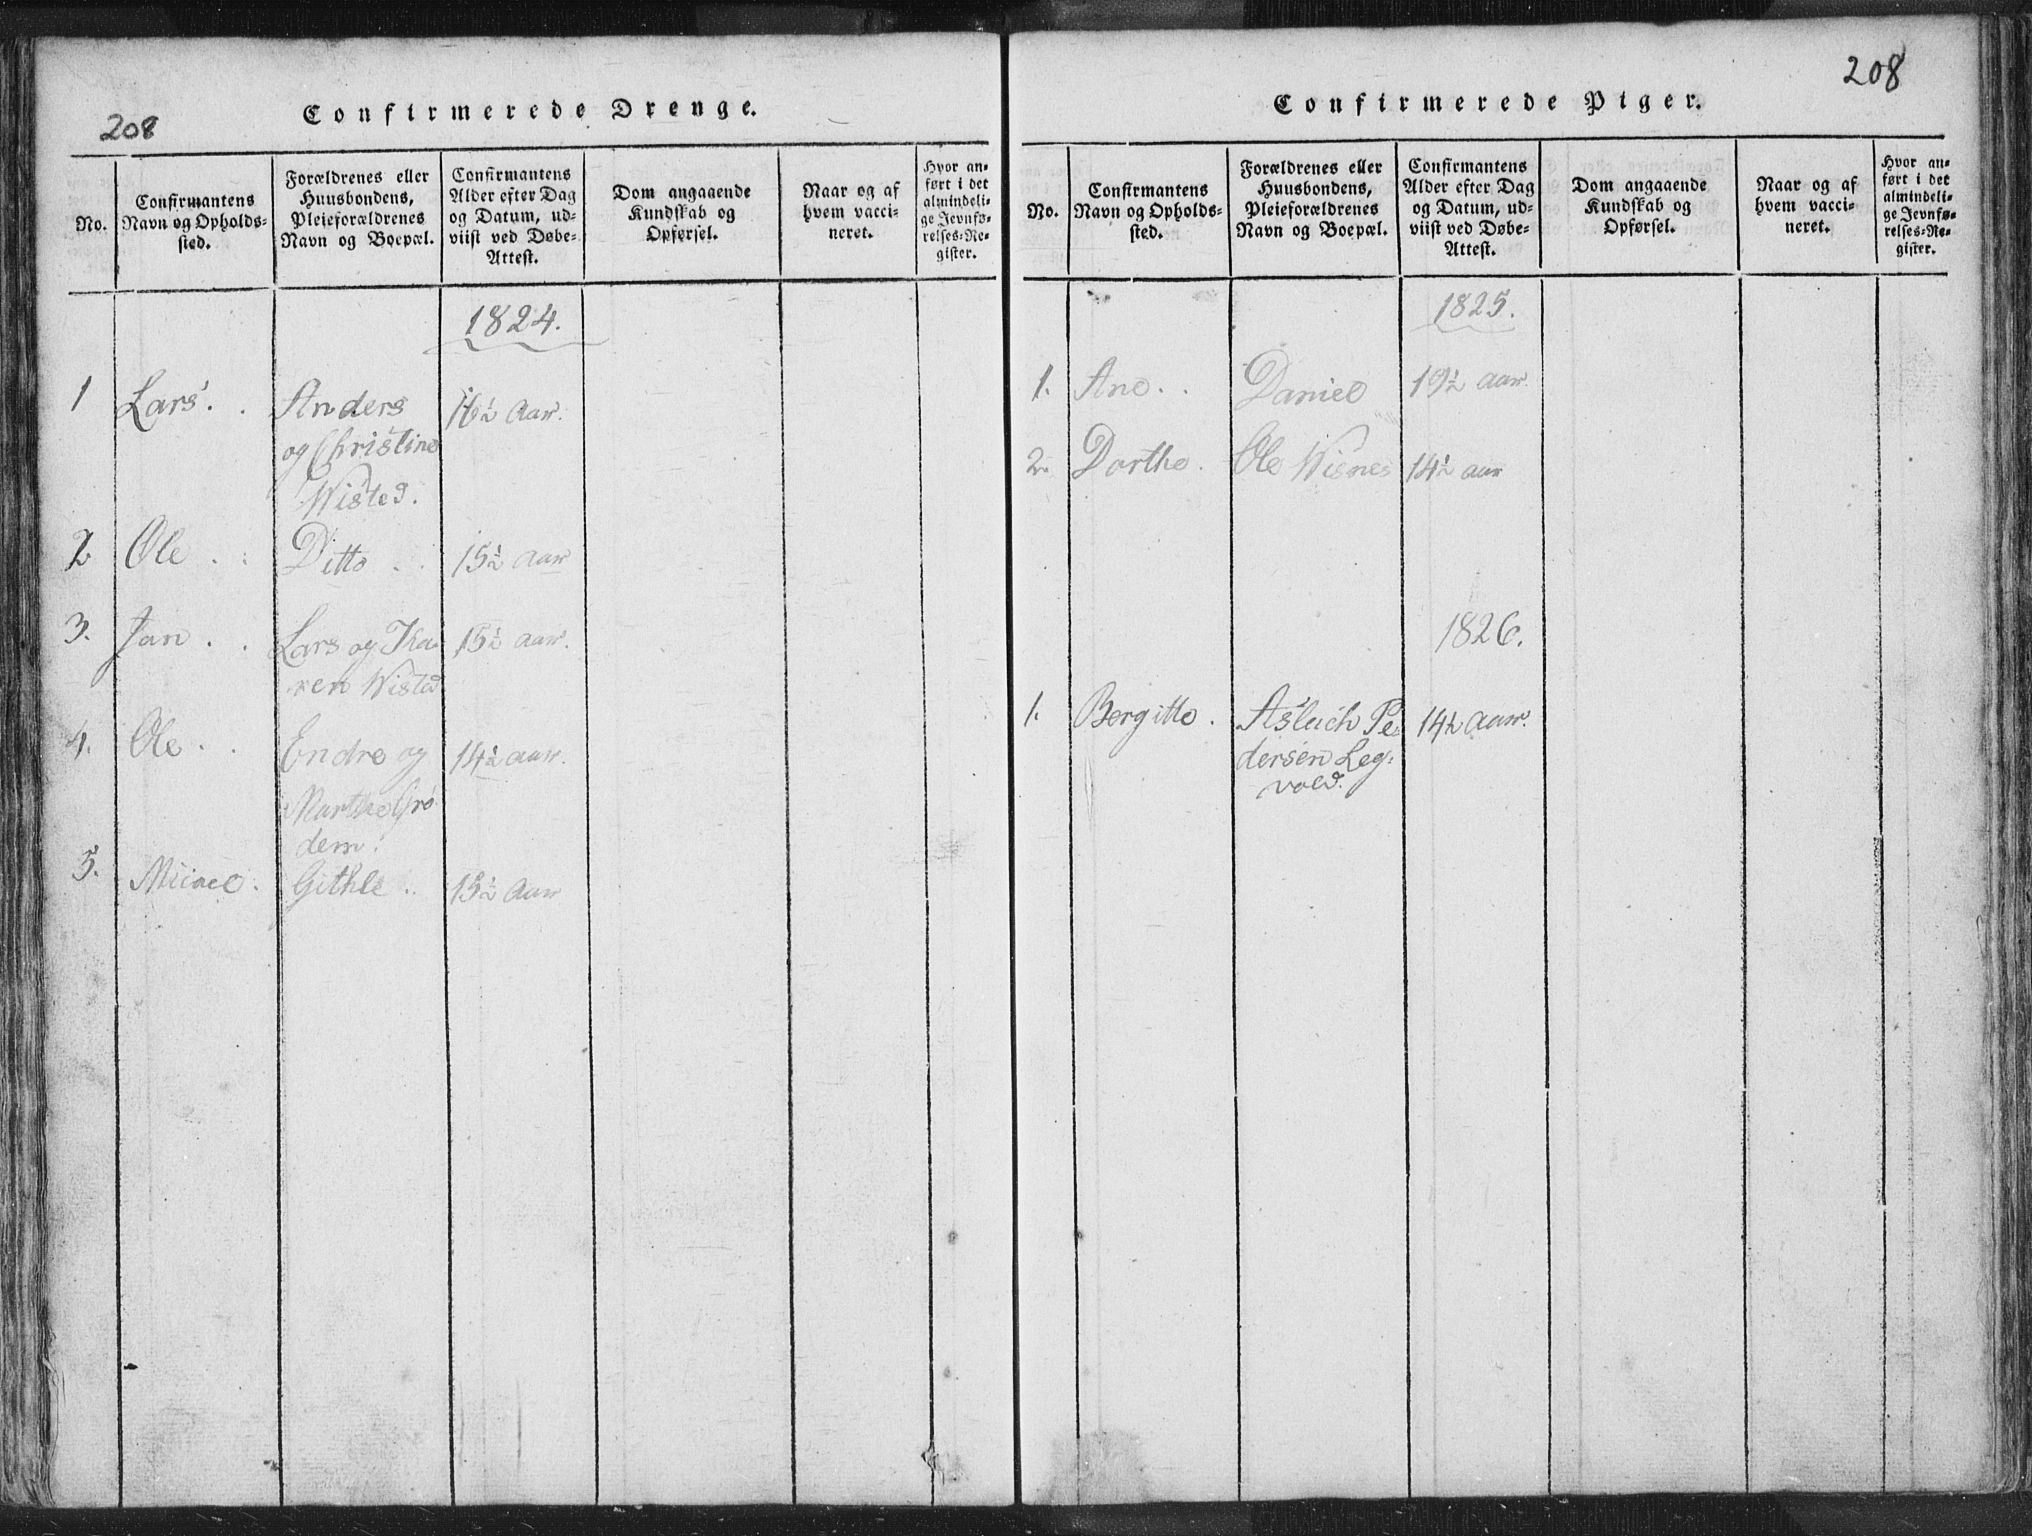 208
Confirmerede Drenge.
No.
Confirmantens
Navn og Opholds-
sted.
Forældrenes eller
Huusbondens,
Pleieforældrenes
Navn og Boepæl.
Confirmantens
Alder efter Dag
og Datum, ud-
viist ved Døbe-
Attest.
Dom angaaende
Kundskab og
Opførsel.
Naar og af
hvem vacci-
neret.
Hvor an-
ført i det
almindeli-
ge Jevnfø-
relses-Re-
gister.
1824.
1 Lars. . Anders 16½ Aar.
og Christine
Wisted.
2 Ole . . Ditto . . 15½ Aar
3. Jan . . Lars og Ka- 15½ Aar.
ren Wisted
4. Ole . . Endre og 14½ Aar.
Marthe Grø
dem.
5. Micael. Githle . . 15½ Aar
208
Confirmerede Piger.
No.
Confirmantens
Navn og Opholds-
sted.
Forældrenes eller
Huusbondens,
Pleieforældrenes
Navn og Boepæl.
Confirmantens
Alder efter Dag
og Datum, ud-
viist ved Døbe-
Attest.
Dom angaaende
Kundskab og
Opførsel.
Naar og af
hvem vacci-
neret.
Hvor an-
ført i det
almindeli-
ge Jevnfø-
relses-Re-
gister.
1825.
1. Ane . . Daniel 19½ Aar.
2. Dorthe. Ole Wisnes 14½ Aar
1826.
1. Bergitte . Aslach Pe 14½ Aar.
dersen Leg:
vold.